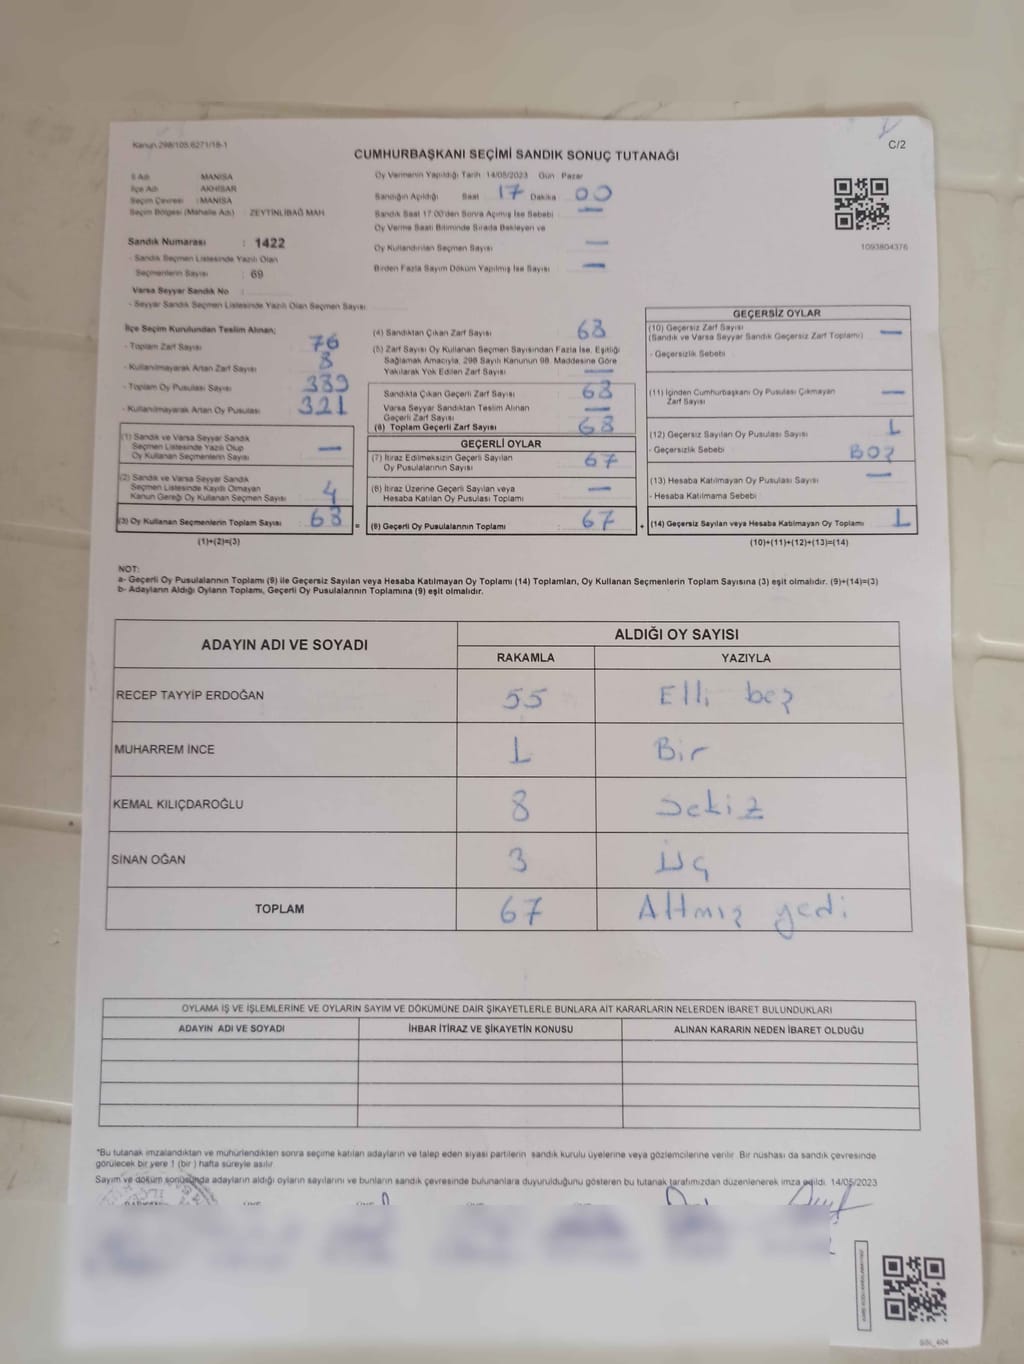 Kanun 298/105.6271/16-1
C/2
CUMHURBAŞKANI SEÇİMİ SANDIK SONUÇ TUTANAĞI
İl Adı MANİSA
İlçe Adı AKHİSAR
Seçim Çevresi : MANİSA
Seçim Bölgesi (Mahalle Adı) : ZEYTİNLİBAĞ MAH
Sandık Numarası : 1422
- Sandık Seçmen Listesinde Yazılı Olan
Seçmenlerin Sayısı : 69
Varsa Seyyar Sandık No :
- Seyyar Sandık Seçmen Listesinde Yazılı Olan Seçmen Sayısı
Oy Vermenin Yapıldığı Tarih 14/05/2023 Gün Pazar
Sandığın Açıldığı Saat 17 Dakika 00
Sandık Saat 17:00'den Sonra Açılmış İse Sebebi —
Oy Verme Saati Bitiminde Sırada Bekleyen ve
Oy Kullandırılan Seçmen Sayısı —
Birden Fazla Sayım Döküm Yapılmış İse Sayısı —
1093804376
İlçe Seçim Kurulundan Teslim Alınan;
- Toplam Zarf Sayısı 76
- Kullanılmayarak Artan Zarf Sayısı 8
- Toplam Oy Pusulası Sayısı 389
- Kullanılmayarak Artan Oy Pusulası 321
(1) Sandık ve Varsa Seyyar Sandık
Seçmen Listesinde Yazılı Olup
Oy Kullanan Seçmenlerin Sayısı —
(2) Sandık ve Varsa Seyyar Sandık
Seçmen Listesinde Kayıtlı Olmayan
Kanun Gereği Oy Kullanan Seçmen Sayısı 4
(3) Oy Kullanan Seçmenlerin Toplam Sayısı 68 =
(1)+(2)=(3)
(4) Sandıktan Çıkan Zarf Sayısı 68
(5) Zarf Sayısı Oy Kullanan Seçmen Sayısından Fazla İse, Eşitliği
Sağlamak Amacıyla, 298 Sayılı Kanunun 98. Maddesine Göre
Yakılarak Yok Edilen Zarf Sayısı —
Sandıkta Çıkan Geçerli Zarf Sayısı 68
Varsa Seyyar Sandıktan Teslim Alınan
Geçerli Zarf Sayısı —
(6) Toplam Geçerli Zarf Sayısı 68
GEÇERLİ OYLAR
(7) İtiraz Edilmeksizin Geçerli Sayılan
Oy Pusulalarının Sayısı 67
(8) İtiraz Üzerine Geçerli Sayılan veya
Hesaba Katılan Oy Pusulası Toplamı —
(9) Geçerli Oy Pusulalarının Toplamı 67 +
GEÇERSİZ OYLAR
(10) Geçersiz Zarf Sayısı
(Sandık ve Varsa Seyyar Sandık Geçersiz Zarf Toplamı) —
- Geçersizlik Sebebi
(11) İçinden Cumhurbaşkanı Oy Pusulası Çıkmayan
Zarf Sayısı —
(12) Geçersiz Sayılan Oy Pusulası Sayısı 1
- Geçersizlik Sebebi Boş
(13) Hesaba Katılmayan Oy Pusulası Sayısı —
- Hesaba Katılmama Sebebi
(14) Geçersiz Sayılan veya Hesaba Katılmayan Oy Toplamı 1
(10)+(11)+(12)+(13)=(14)
NOT:
a- Geçerli Oy Pusulalarının Toplamı (9) ile Geçersiz Sayılan veya Hesaba Katılmayan Oy Toplamı (14) Toplamları, Oy Kullanan Seçmenlerin Toplam Sayısına (3) eşit olmalıdır. (9)+(14)=(3)
b- Adayların Aldığı Oyların Toplamı, Geçerli Oy Pusulalarının Toplamına (9) eşit olmalıdır.
ADAYIN ADI VE SOYADI ALDIĞI OY SAYISI
RAKAMLA YAZIYLA
RECEP TAYYİP ERDOĞAN 55 Elli beş
MUHARREM İNCE 1 Bir
KEMAL KILIÇDAROĞLU 8 Sekiz
SİNAN OĞAN 3 Üç
TOPLAM 67 Altmış yedi
OYLAMA İŞ VE İŞLEMLERİNE VE OYLARIN SAYIM VE DÖKÜMÜNE DAİR ŞİKAYETLERLE BUNLARA AİT KARARLARIN NELERDEN İBARET BULUNDUKLARI
ADAYIN ADI VE SOYADI İHBAR İTİRAZ VE ŞİKAYETİN KONUSU ALINAN KARARIN NEDEN İBARET OLDUĞU
*Bu tutanak imzalandıktan ve mühürlendikten sonra seçime katılan adayların ve talep eden siyasi partilerin sandık kurulu üyelerine veya gözlemcilerine verilir. Bir nüshası da sandık çevresinde
görülecek bir yere 1 (bir ) hafta süreyle asılır.
Sayım ve döküm sonucunda adayların aldığı oyların sayılarını ve bunların sandık çevresinde bulunanlara duyurulduğunu gösteren bu tutanak tarafımızdan düzenlenerek imza edildi. 14/05/2023